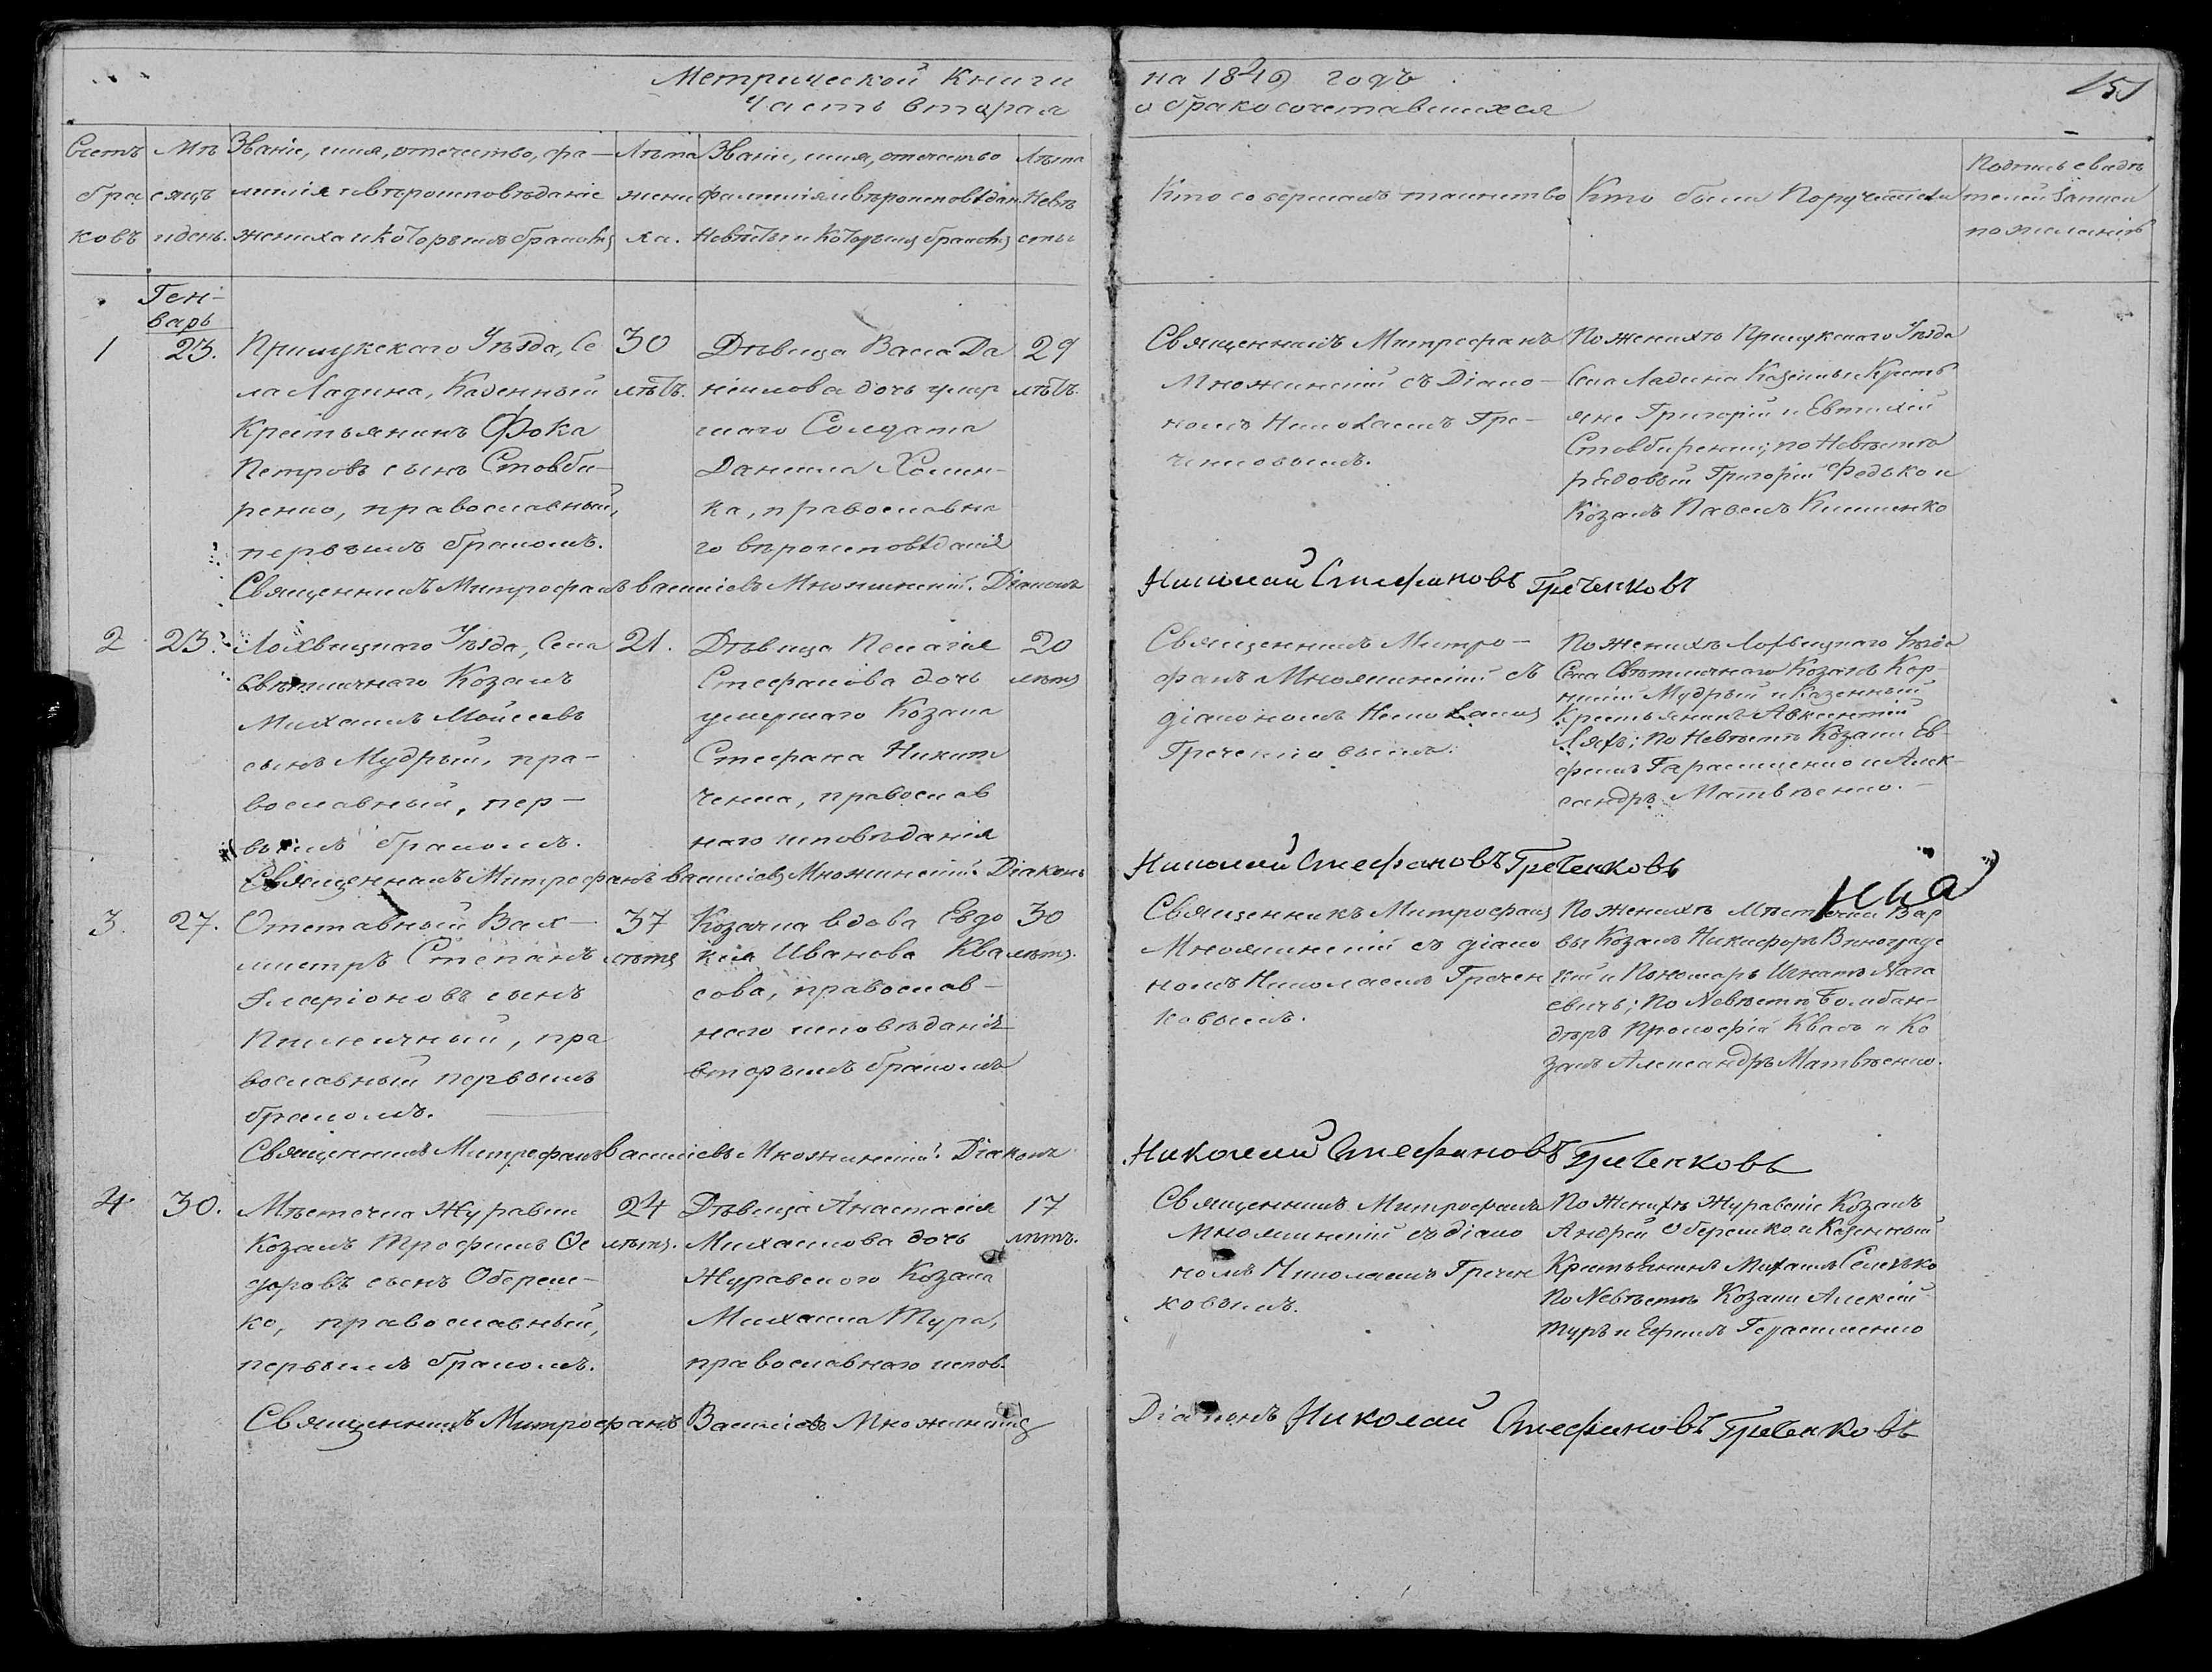 Метрической Книги на 1849 годъ
Часть вторая о бракосочетавшихся
151
Счетъ браковъ
Мѣсяцъ и день.
Званіе, имя, отечество, фамилія и вѣроисповѣданіе жениха и которымъ бракомъ
Лѣта жениха.
Званіе, имя, отечество фамилія и вѣроисповѣдан. Невѣсты и которымъ бракомъ
Лѣта Невѣсты
Кто совершалъ таинство
Кто были Поручители
Подпись свидѣтелей записи по желанію
Генварь
1
23.
Прилукскаго Уѣзда, Се
ла Ладина, Казенный
Крестьянинъ Фока
Петровъ сынъ Стовби-
ренко, православный,
первымъ бракомъ.
30
лѣтъ.
Дѣвица Васса Да
ніилова дочь умер
шаго Солдата
Даніила Хомен-
ка, православна
го вѣроисповѣданія
29
лѣтъ.
Священникъ Митрофанъ
Множинскій съ Діако-
номъ Николаемъ Гре-
ченковымъ.
По женихѣ Прилукскаго Уѣзда
Села Ладина Казенные Кресть
яне Григорій и Евтихій
Стовбиренки; по Невѣстѣ
рядовый Григорій Федько и
Козакъ Павелъ Кишенко
Священникъ Митрофанъ Василіевъ Множинскій. Діаконъ Николай Стефановъ Греченковъ
2
23.
Лохвицкаго Уѣзда, Села
Свѣтличнаго Козакъ
Михаилъ Мойсеевъ
сынъ Мудрый, пра-
вославный, пер-
вымъ бракомъ.
21.
Дѣвица Пелагія
Стефанова дочь
умершаго Козака
Стефана Никит
ченка, православ
наго исповѣданія
20
лѣтъ
Священникъ Митро-
фанъ Множинскій съ
діакономъ Николаемъ
Греченковымъ.
По женихѣ Лохвицкаго Уѣзда
Села Свѣтличнаго Козакъ Кор-
нилій Мудрый и Казенный
Крестьянинъ Авксентій
Ляхъ; по Невѣстѣ Козаки Ев-
фимъ Гарасименко и Алек-
сандръ Матвѣенко.
Священникъ Митрофанъ Василіевъ Множинскій. Діаконъ Николай Стефановъ Греченковъ
3.
27.
Отставный Вах-
мистръ Степанъ
Иларіоновъ сынъ
Пшеничный, пра
вославный первымъ
бракомъ.
37
лѣтъ
Козачка вдова Евдо
кія Иванова Ква
сова, православ-
наго исповѣданія
вторымъ бракомъ
30
лѣтъ.
Священникъ Митрофанъ
Множинскій съ діако
номъ Николаемъ Гречен
ковымъ.
По женихѣ Мѣстечка Вар
вы Козакъ Никифоръ Виноградс
кій и Пономарь Игнатъ
по Невѣстѣ Бомбан-
диръ Прокофій Квасъ и Ко
закъ Александръ Матвѣенко.
Священникъ Митрофанъ Василіевъ Множинскій. Діаконъ Николай Стефановъ Греченковъ
4
30.
Мѣстечка Журавки
Козакъ Трофимъ Ѳе
доровъ сынъ Обереш-
ко, православный,
первымъ бракомъ.
24
лѣтъ.
Дѣвица Анастасія
Михайлова дочь
Журавского Козака
Михаила Тура,
православнаго испов.
17
лѣтъ.
Священникъ Митрофанъ
Множинскій съ діако
номъ Николаемъ Гречен
ковымъ.
По женихѣ Журавскіе Козакъ
Андрей Оберешко и Казенный
Крестьянинъ Михаилъ
по Невѣстѣ Козаки Алексій
Туръ и Ефимъ Герасименко
Священникъ Митрофанъ Василіевъ Множинскій Діаконъ Николай Стефановъ Греченковъ